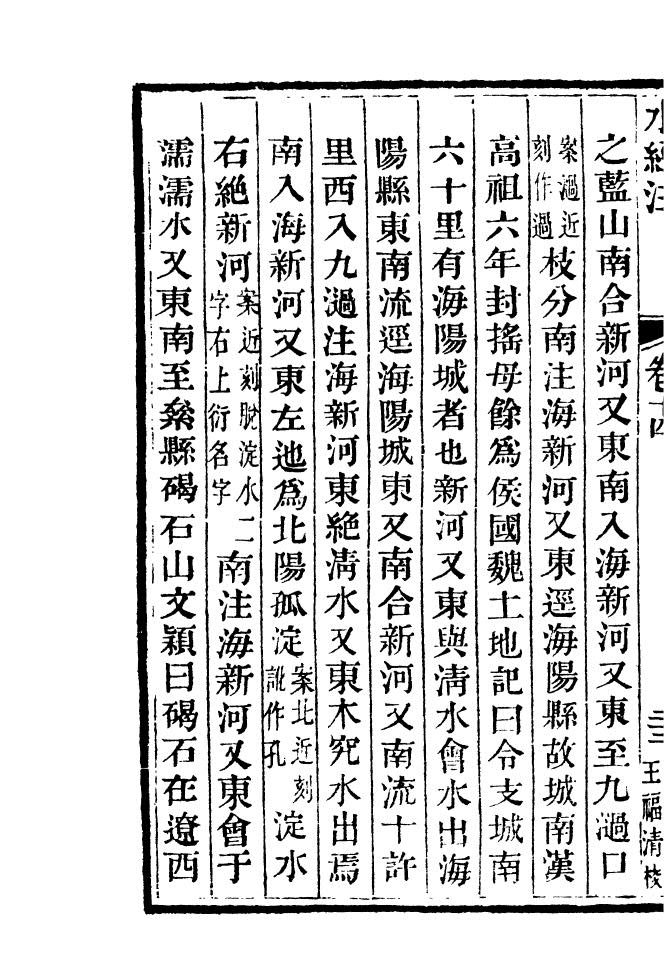 水經注 卷十四 三三 王福清校
之藍山南合新河又東南入海新河又東至九濄口
案濄近
刻作過
枝分南注海新河又東逕海陽縣故城南漢
高祖六年封搖母餘爲侯國魏土地記曰令支城南
六十里有海陽城者也新河又東與淸水會水出海
陽縣東南流逕海陽城東又南合新河又南流十許
里西入九濄注海新河東絶淸水又東木究水出焉
南入海新河又東左迆爲北陽孤淀
案北近刻
訛作孔
淀水
右絶新河
案近刻脫淀水
字右上衍名字
二
南注海新河又東會于
濡濡水又東南至絫縣碣石山文穎曰碣石在遼西